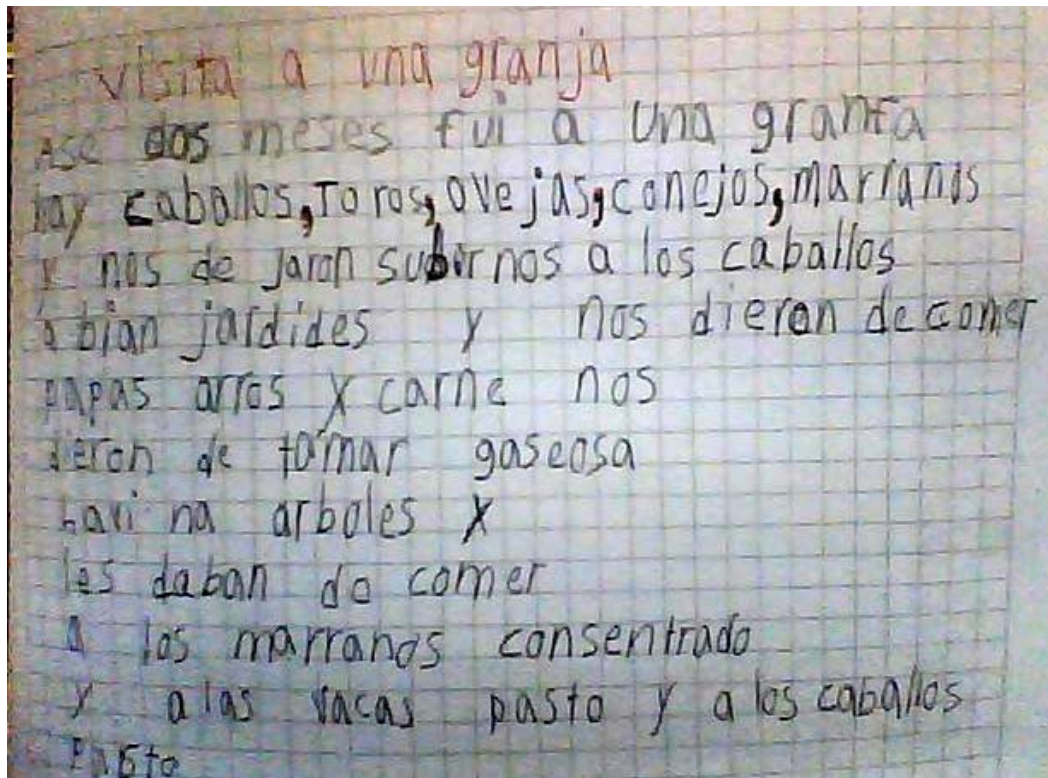 visita a una granja
Ase dos meses fui a una granfa
hay caballos, Toros, ovejas, conejos, marranos
y nos de jaron subirnos a los caballos
a bian jardides y nos dieron de comer
papas arros y carne nos
dieron de tomar gaseosa
havi na arboles y
les daban de comer
a los marranos consentrado
y a las vacas pasto y a los caballos
Pasto